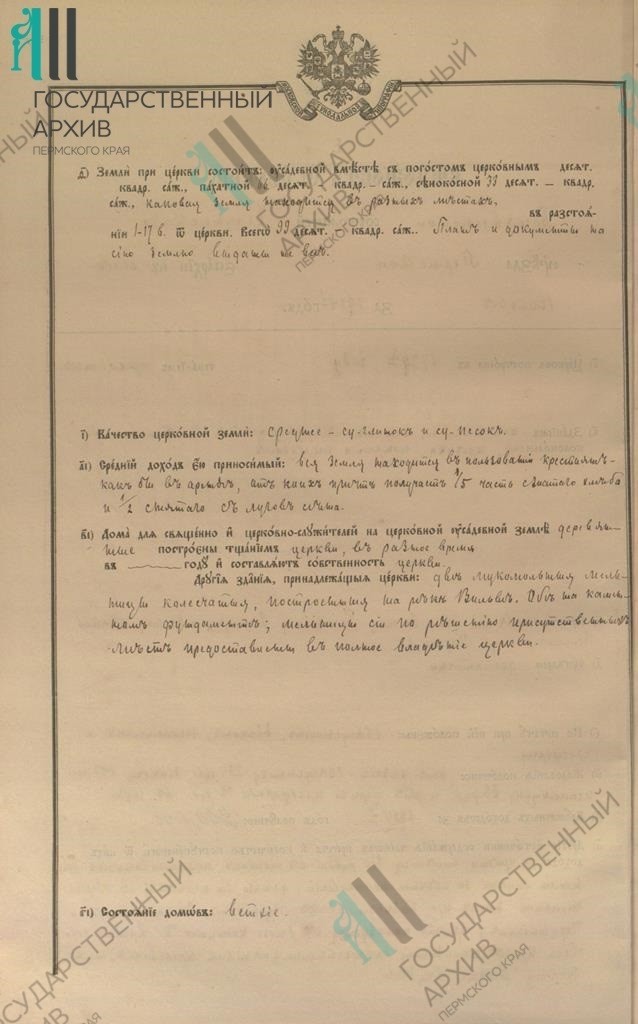 ГОСУДАРСТВЕННЫЙ
АРХИВ
ПЕРМСКОГО КРАЯ
Земли при церкви состоитъ: усадебной вмѣстѣ съ погостомъ церковнымъ десят.
квадр. саж., пахатной десят. квадр. – саж., сѣнокосной 33 десят. – квадр.
саж., каковая земля находится въ разныхъ мѣстахъ,
въ разстоя-
нїи 1-17 в. ѿ церкви. Всего 99 десят. – квадр. саж.. Планъ и документы на
сію землю выданы не все.
і) Качество церковной земли: среднее – су-глинокъ и су-песокъ.
аі) Среднїй доходъ ею приносимый: вся земля находится въ пользованіи крестьянъ-
какъ бы въ арендѣ, отъ нихъ причтъ получаетъ 1/5 часть снятаго хлѣба
и 1/2 снятаго съ луговъ сѣна.
ві) Дома для священно и церковно-служителей на церковной усадебной землѣ деревян-
ные построены тщанїемъ церкви, въ разное время
въ году и составляютъ собственность церкви.
Другїя зданїя, принадлежащыя церкви: двѣ мукомольныя мель-
ницы колесчатыя, построенныя на рѣкѣ Вильвѣ. Обѣ на камен-
номъ фундаментѣ; мельницы сіи по рѣшенію присутственныхъ
мѣстъ предоставлены въ полное владѣніе церкви.
гі) Состоянїе домωвъ: ветхіе.
ГОСУДАРСТВЕННЫЙ
АРХИВ
ПЕРМСКОГО КРАЯ
ГОСУДАРСТВЕННЫЙ
АРХИВ
ПЕРМСКОГО КРАЯ